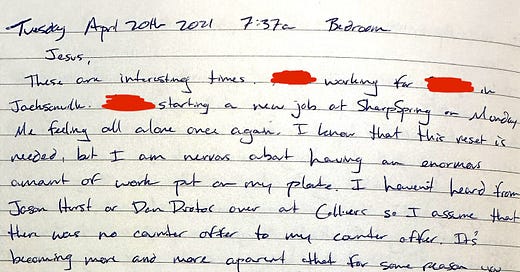 Tuesday April 20th 2021 7:37a Bedroom
Jesus,
These are interesting times. working for in
Jacksonville. starting a new job at SharpSpring on Monday
Me feeling all alone once again. I know that this reset is
needed, but I am nervous about having an enormous
amount of work put on my plate. I haven't heard from
Jason Hurst or Dan Drotos over at Colliers so I assume that
there was no counter offer to my counter offer. It's
becoming more and more apparent that for some reason